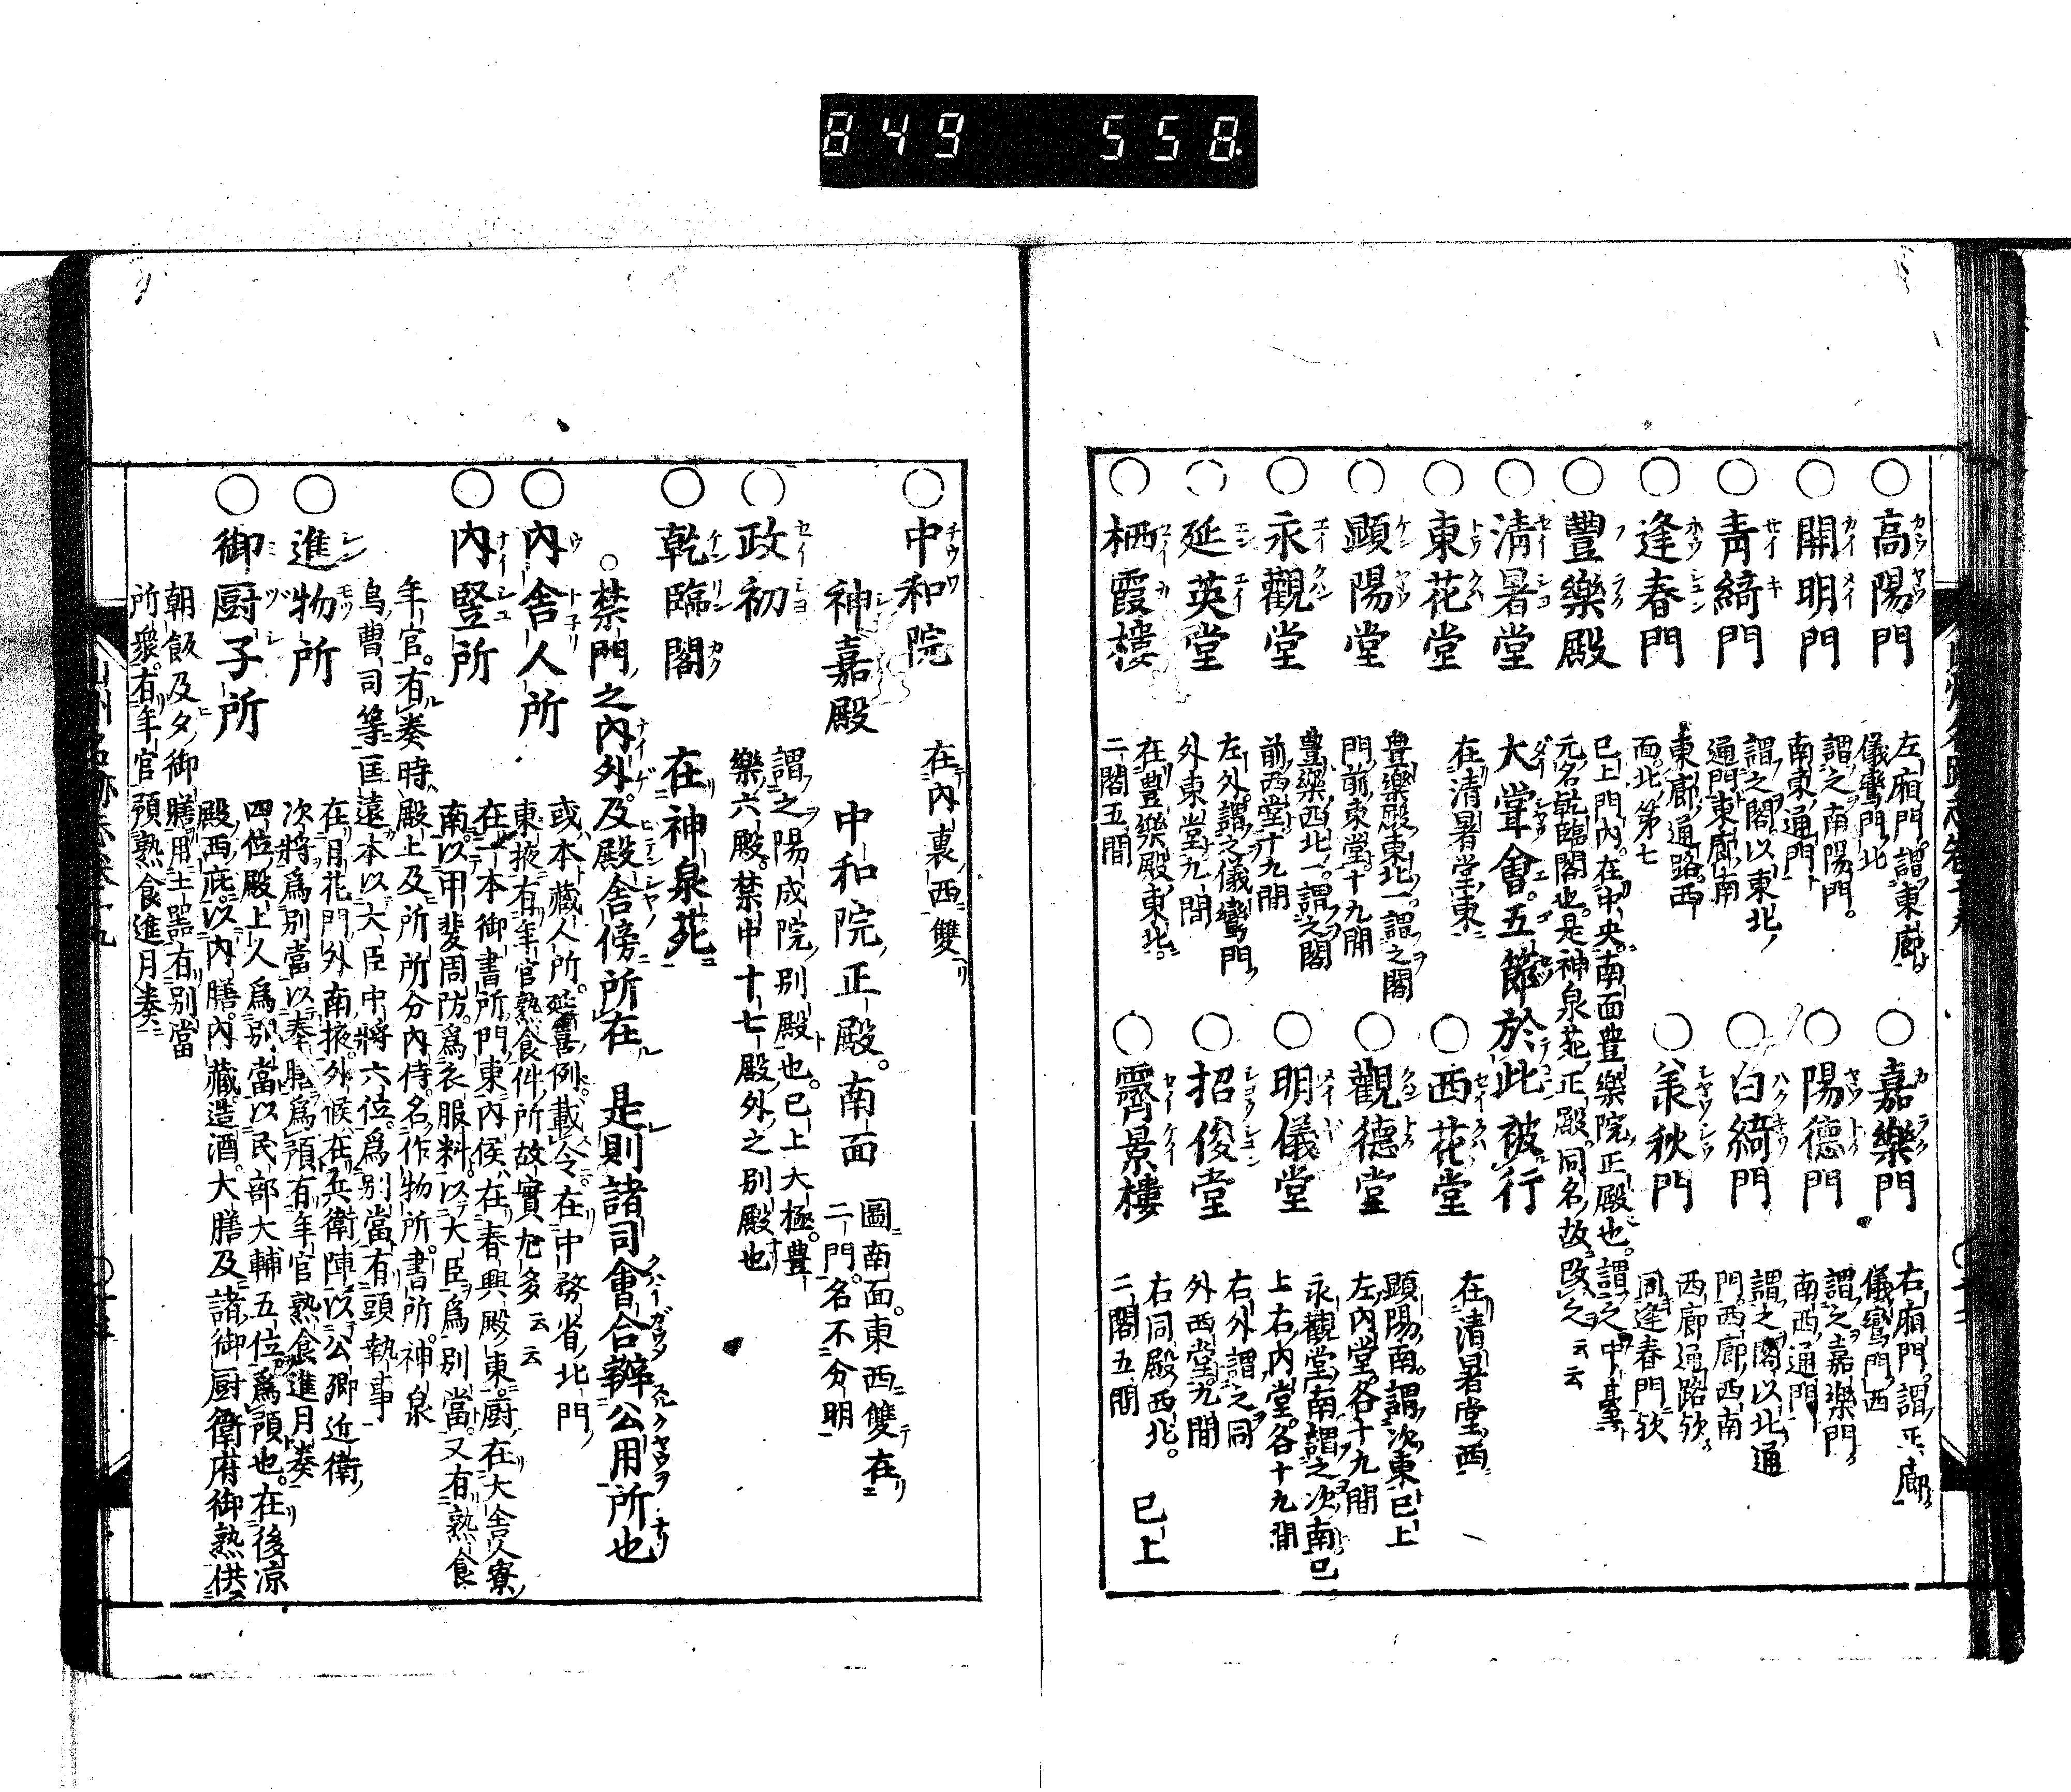 849 558
○高陽門 左廂門謂東廊儀鸞門北
○嘉樂門 右廂門謂
儀鸞門西
○開明門 謂之南陽門。
南東通門
○陽德門 謂之嘉樂門
南西通門
○青綺門 謂之閤以東北
通門東廊南
○白綺門 謂之閤以北通
門西廊西南
○逢春門 東廊通路西
面北第七
○承秋門 西廊通路欤
同逢春門欤
○豐樂殿 已上門內。在中央。南面豊樂院正殿也。謂之中臺
元名乾臨閣也。是神泉苑正殿。同名故改之云云
○淸暑堂 大甞會。五節於此被行
○東花堂 在淸暑堂東
○西花堂 在淸暑堂西
○顯陽堂 豊樂殿東北一。謂之閤
門前東堂。十九間
○觀德堂 顯陽南。謂次東已上
左內堂。各十九間
○永觀堂 豊樂西北一。謂之閤
前西堂十九間
○明儀堂 永觀堂南謂之次南已
上右內堂。各十九間
○延英堂 左外。謂之儀鸞門
外東堂九間
○招俊堂 右外謂之同
外西堂。九間
○栖霞樓 在豊樂殿東北。
二閣五間
○霽景樓 右同殿西北。
二閣五間 已上
○中和院 在內裏西雙
神嘉殿 中和院正殿。南面 圖南面。東西雙在
二門。名不分明
○政初 謂之陽成院別殿也。已上大極。豊
樂六殿。禁中十七殿外之別殿也
○乾臨閣 在神泉苑
○禁門之內外。及殿舍傍所在 是則諸司會合辦公用所也
○內舍人所 或本藏人所。延喜例。載令。在中務省北門
東掖有年官熟食件所故實尤多云云
○內竪所 在一本御書所門東內候。在春興殿東。厨在大舍人寮
南。以甲斐周防。爲衣服料。以大臣爲別當。又有熟食
年官。有奏時。殿上及所所分內侍。名作物所。書所。神泉
烏曹司等匡遠本以大臣中將六位。爲別當。有頭執事
○進物所 在月花門外南掖。外候在兵衛陣以公卿近衛
次將爲別當。以奉膳爲預有年官熟食進月奏
○御厨子所 四位殿上人爲別當以民部大輔五位爲預也。在後凉
殿西庇。以內膳。內藏造酒。大膳及諸御厨衛府御熟供
朝飯及夕御膳用土噐有別當
所衆。有年官預熟食進月奏